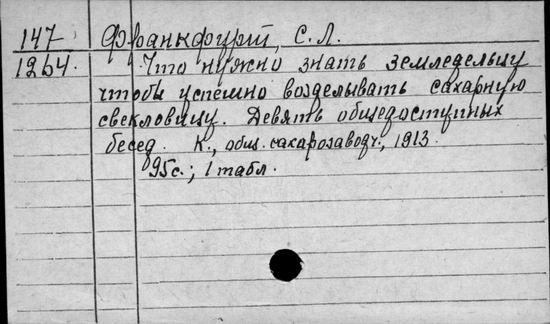 147 Франкфурт, С. Л.
1264. Что нужно знать земледельцу
чтобы успешно возделывать сахарную
свекловицу. Девять общедоступных
бесед. К., общ. сахарозаводч., 1913.
95с.; 1 табл.